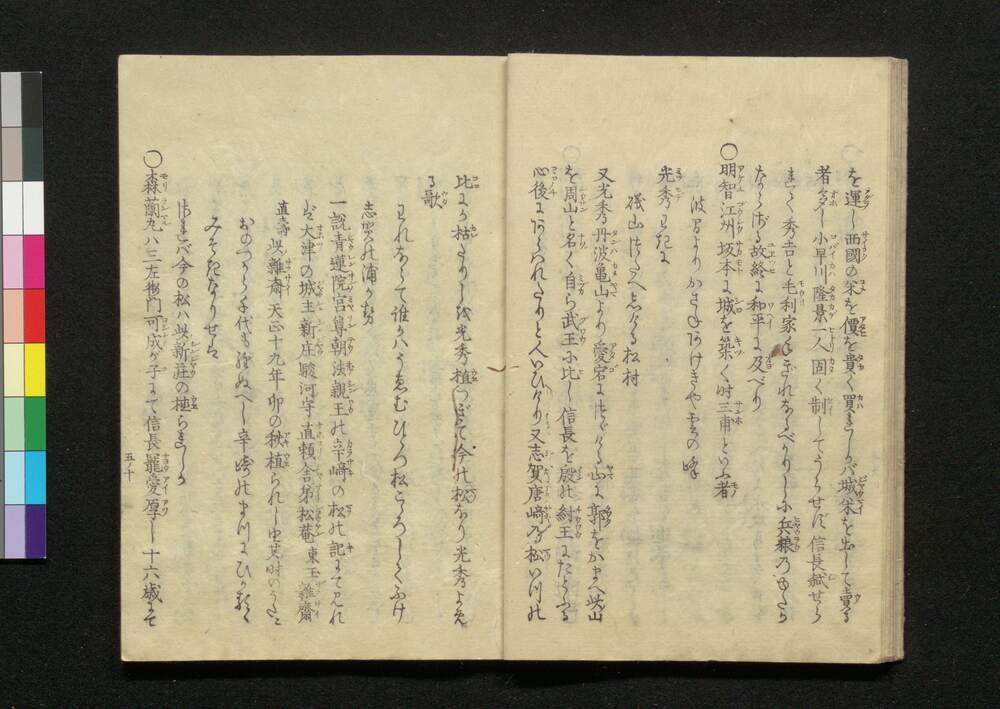 を運し西國の米を價を貴く買ましかバ城米を出して賣る
者多し小早川隆景一人固く制してうらせず信長弑せら
れて秀吉と毛利家手ぎれなるべかりしに兵粮乃ゆたか
ならざる故終に和平に及べり
○明智江州坂本に城を築く時三甫といふ者
波間よりかさねあけきや雲の峰
光秀わきに
磯山つたへしげる松村
又光秀丹波亀山より愛宕につゞける山に郭をかまへ此山
を周山と名く自ら武王に比し信長を殷の紂王にたとふる
心後にあらハれたりと人いひけり又志賀唐崎乃松いつの
比にか枯たりしを光秀植つぎて今の松なり光秀よめ
る歌
われならて誰かハうゑむひとつ松こゝろしてふけ
志賀の浦かぜ
一説青蓮院宮尊朝法親王の辛崎の松の記にて見れ
ば大津の城主新庄駿河守直頼舎弟松菴東玉雜齋
直壽此雜齋天正十九年卯の秋植られし由其時のうたに
おのつから千代も經ぬへし辛崎のまつにひかるゝ
みそきなりせは
されバ今の松ハ此新莊の植られしか
○森蘭丸ハ三左衛門可成が子にて信長寵愛厚し十六歳にて
五ノ十